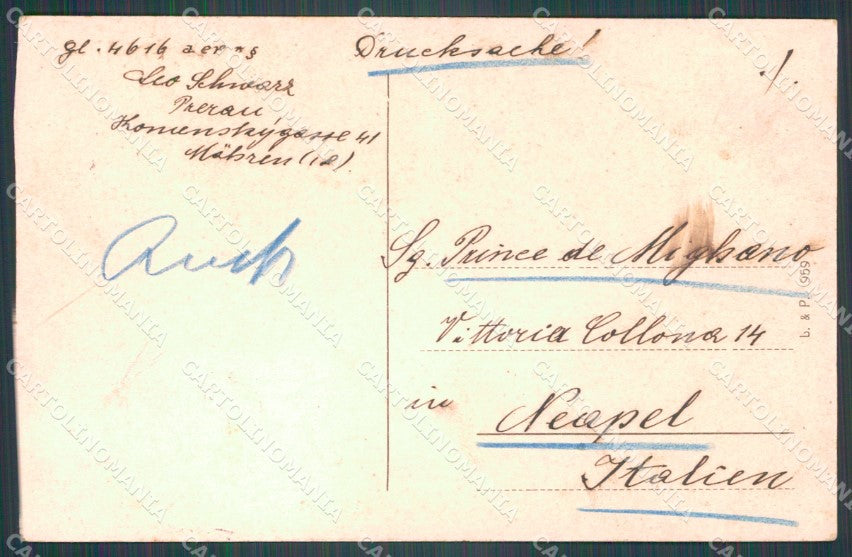 gl. 4616
Drucksache!
Leo Schwarz
Prerau
Komenskýgasse 41
Mähren
Sg. Prince de Migliano
Vittoria Collona 14
in Neapel
Italien
b. & P. 1959
CARTOLINOMANIA